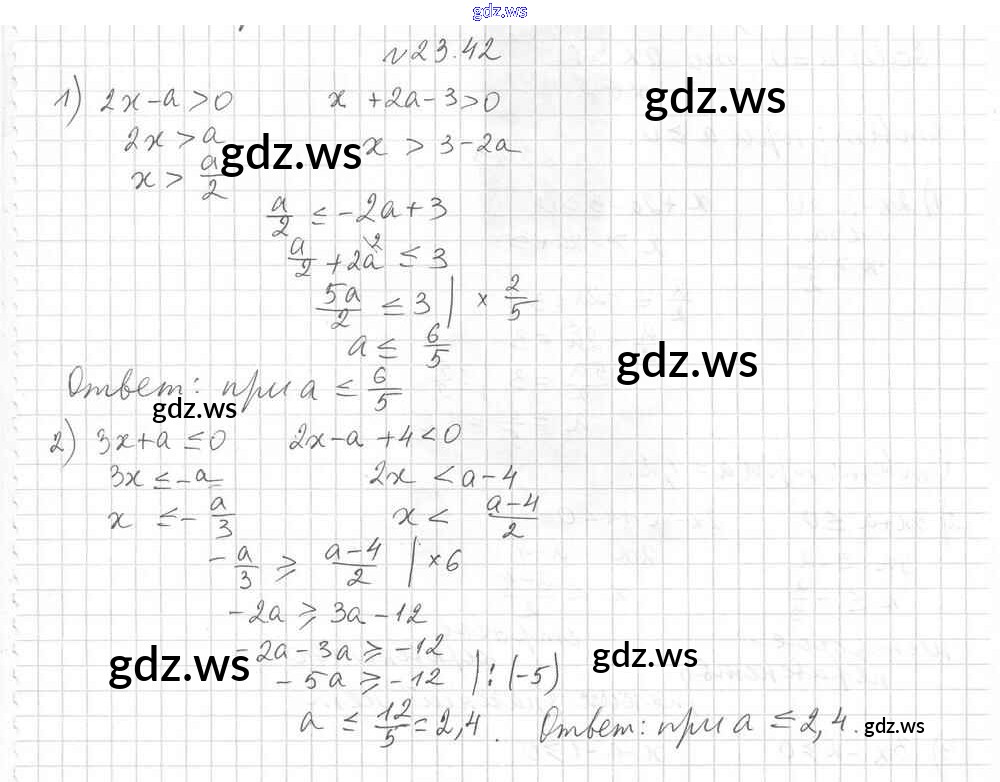 gdz.ws
№23.42
1) 2x-a>0 x+2a-3>0
gdz.ws
2x>a x>3-2a
gdz.ws
x> a/2
a/2 ≤ -2a+3
a/2 + 2a^2 ≤ 3
5a/2 ≤ 3 | × 2/5
a ≤ 6/5
gdz.ws
Ответ: при a ≤ 6/5
gdz.ws
2) 3x+a≤0 2x-a+4<0
3x≤-a 2x<a-4
x ≤ -a/3 x < (a-4)/2
-a/3 ≥ (a-4)/2 | ×6
-2a ≥ 3a-12
-2a-3a ≥ -12
gdz.ws
gdz.ws
-5a ≥ -12 | : (-5)
a ≤ 12/5 = 2,4. Ответ: при a ≤ 2,4.
gdz.ws